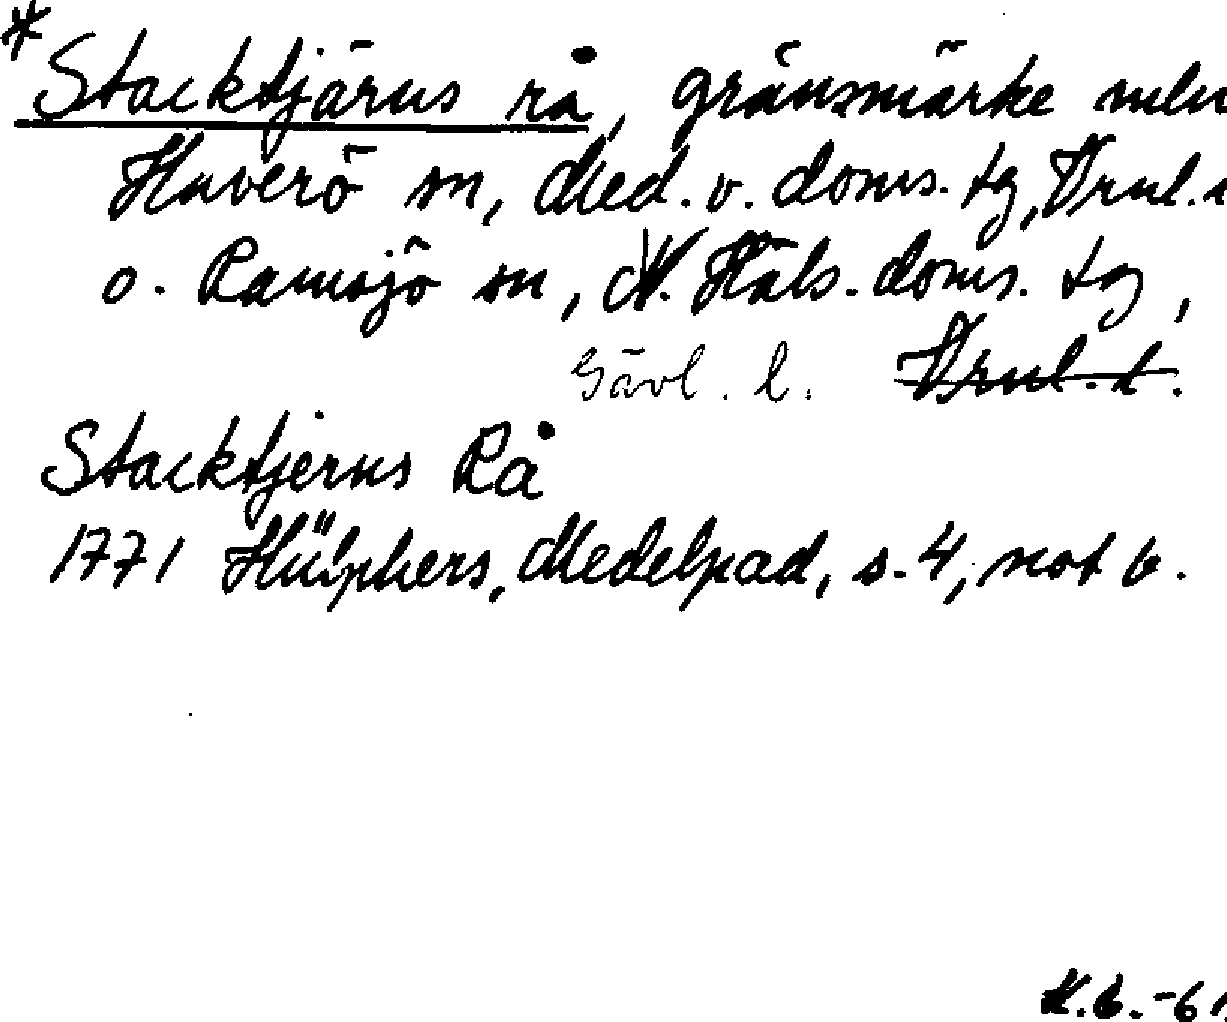 *Stacktjärns rå, gränsmärke mln
Haverö sn, Med. v. doms. tg, Vrnl. l
o. Ramsjö sn, N. Häls. doms. tg,
Gävl. l. Vrnl. l.
Stacktjerns Rå
1771 Hülphers, Medelpad, s. 4, not b.